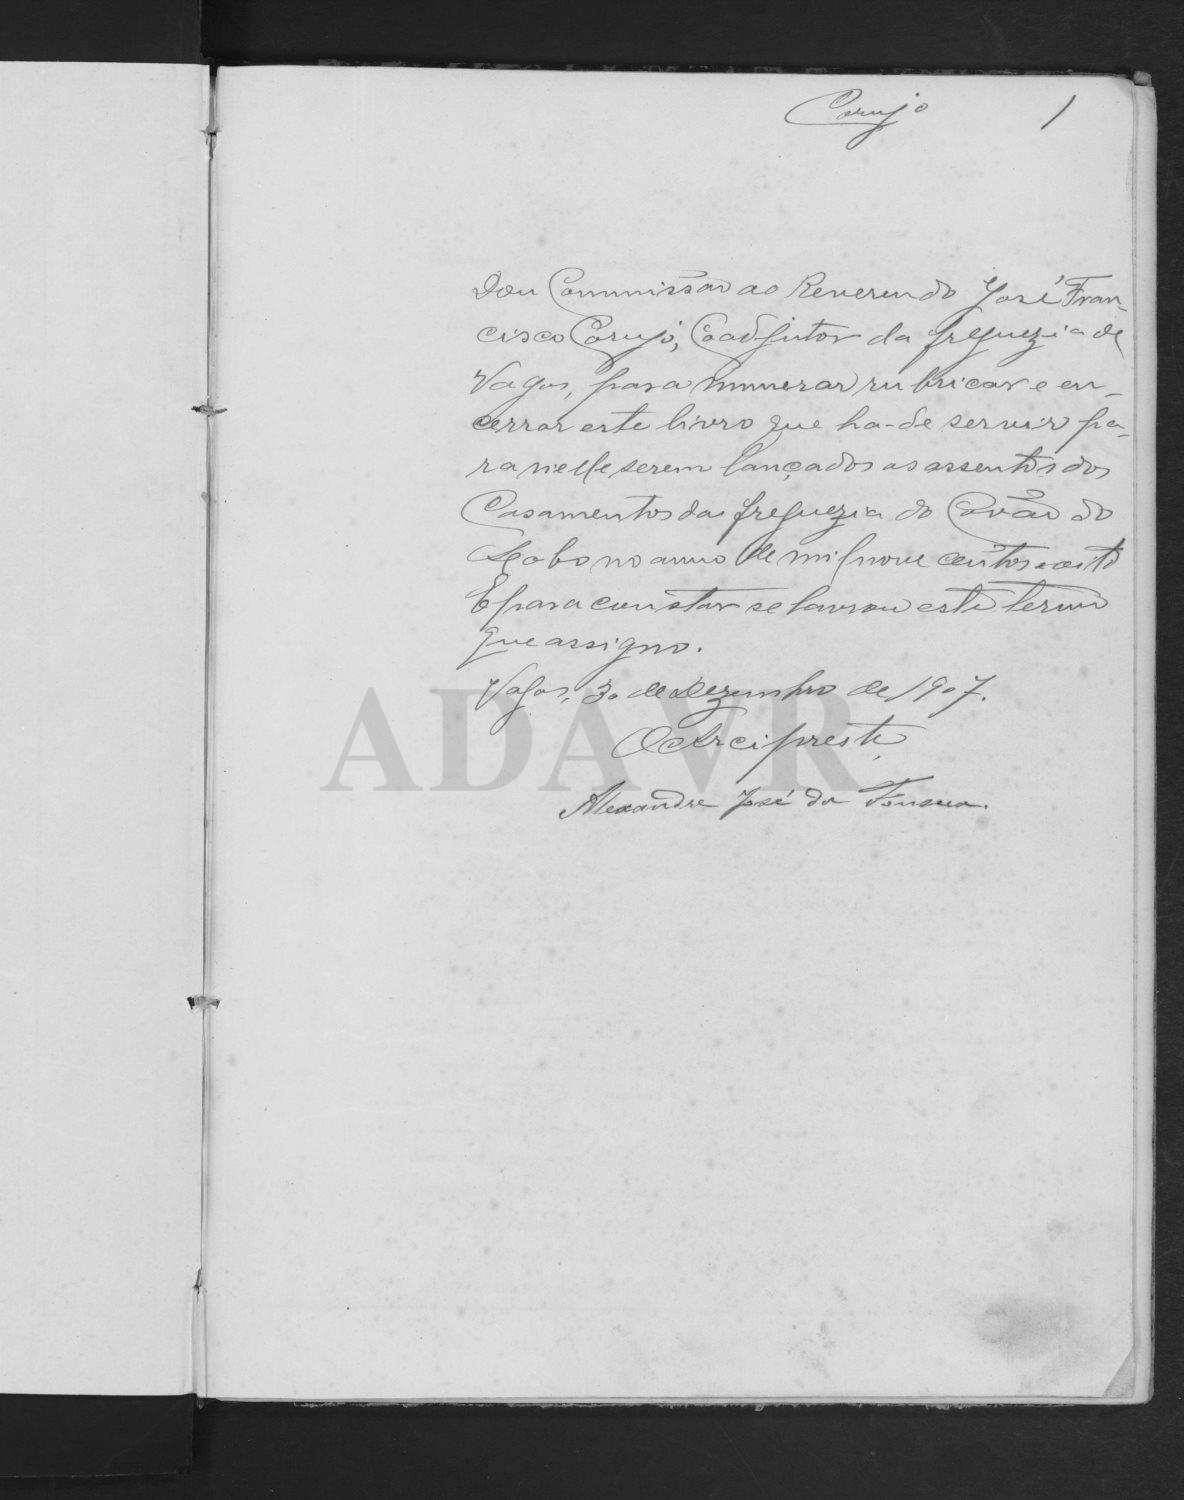 Carujo 1
Dou Commissão ao Reverendo José Fran-
cisco Carujo, Coadjutor da freguezia de
Vagos, para numerar rubricar e en-
cerrar este livro que ha-de servir pa-
ra nelle serem lançados os assentos dos
Casamentos da freguezia do Covão do
Lobo no anno de mil nove centos e oito
E para constar se lavrou este termo
que assigno.
Vagos, 30 de Dezembro de 1907.
O Arcipreste,
Alexandre José da Fonseca.
ADAVR